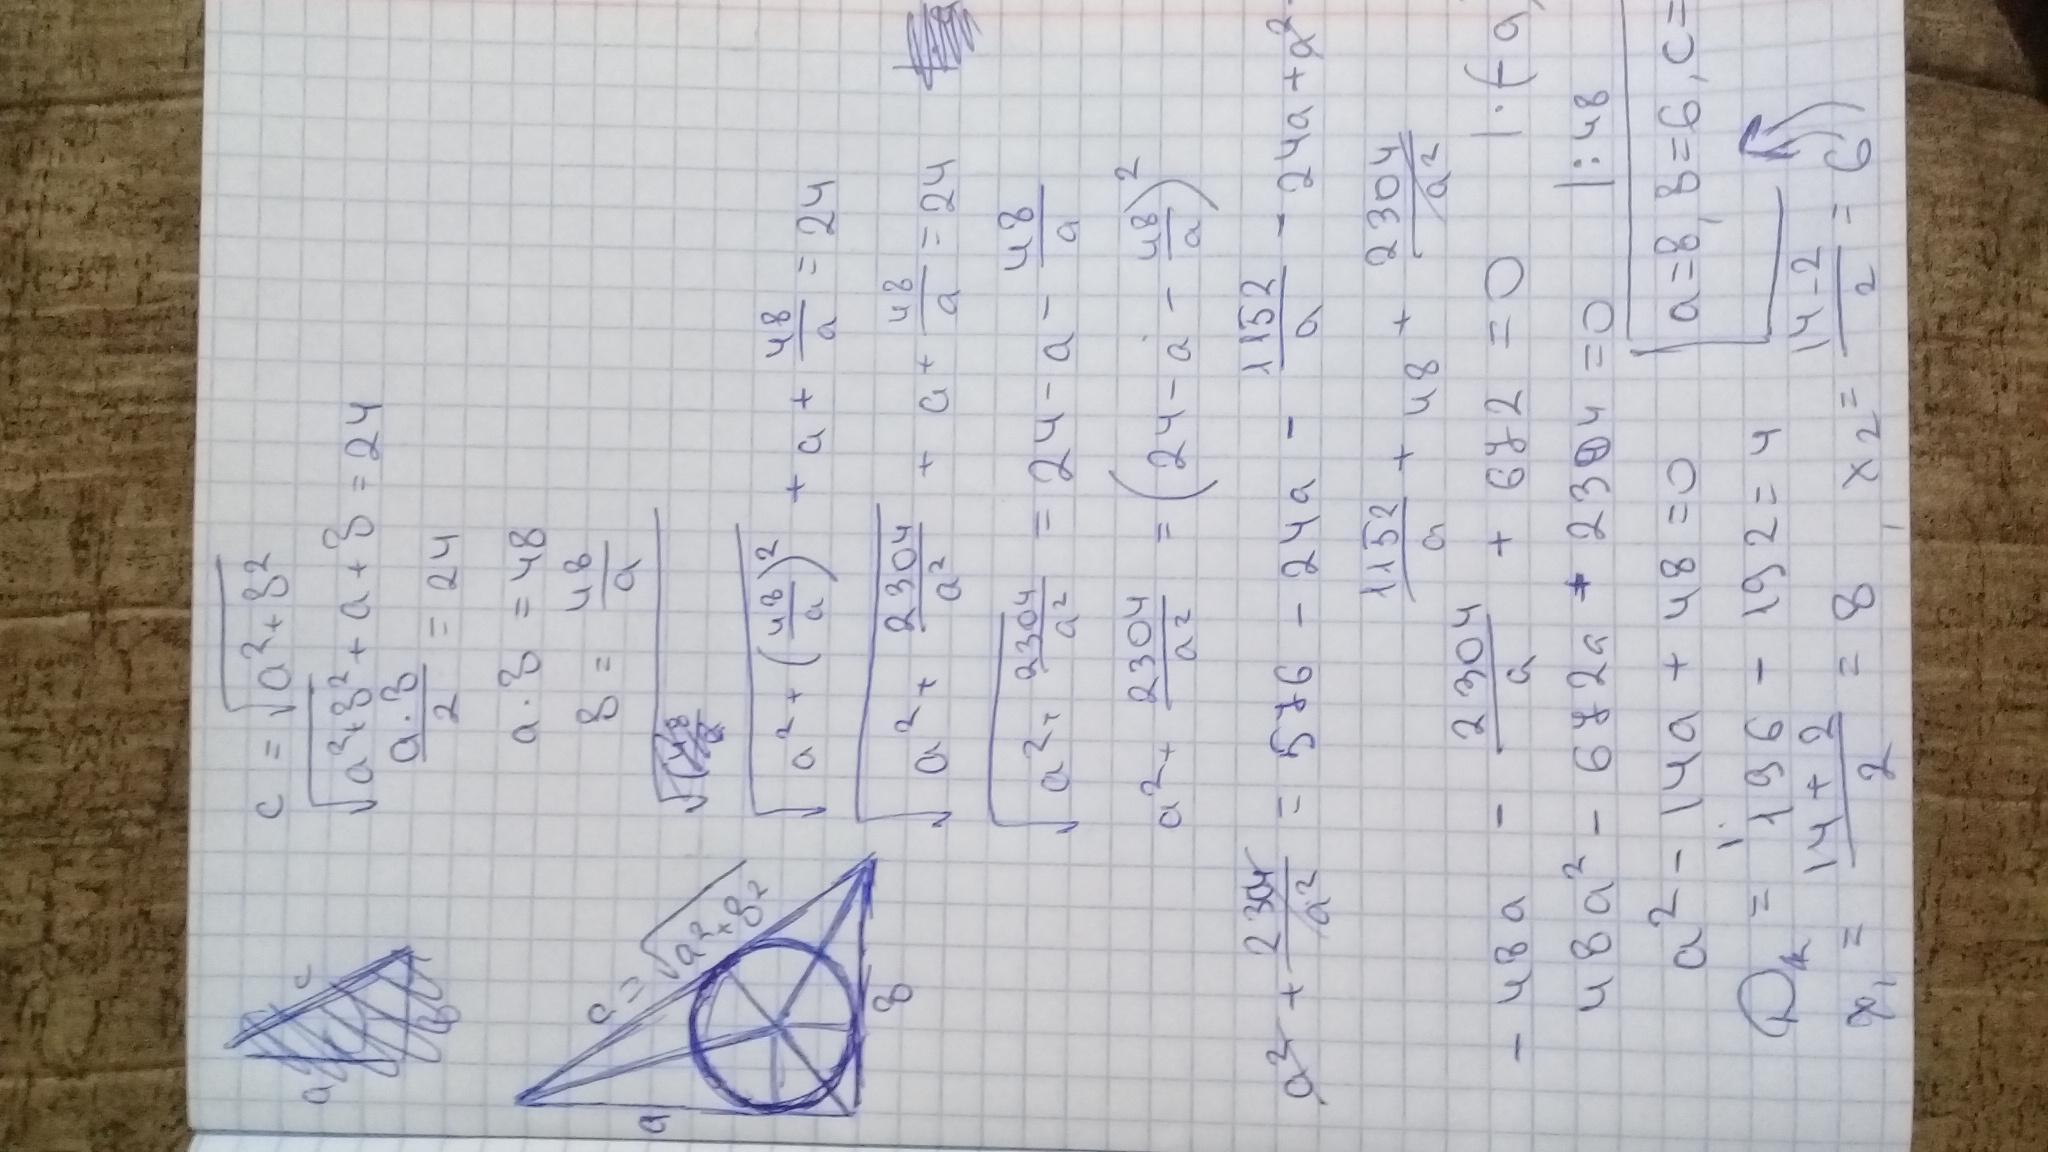 a
c
b
a
c = √(a²+b²)
b
c = √(a²+b²)
√(a²+b²) + a + b = 24
a·b/2 = 24
a·b = 48
b = 48/a
√(a² + (48/a)²) + a + 48/a = 24
√(a² + 2304/a²) + a + 48/a = 24
√(a² + 2304/a²) = 24 - a - 48/a
a² + 2304/a² = (24 - a - 48/a)²
a² + 2304/a² = 576 - 24a - 1152/a - 24a + a²
1152/a + 48 + 2304/a²
- 48a - 2304/a + 672 = 0 |·(-a
48a² - 672a + 2304 = 0 |:48
a² - 14a + 48 = 0
a=8, b=6, c=
D = 196 - 192 = 4
x₁ = (14+2)/2 = 8, x₂ = (14-2)/2 = 6